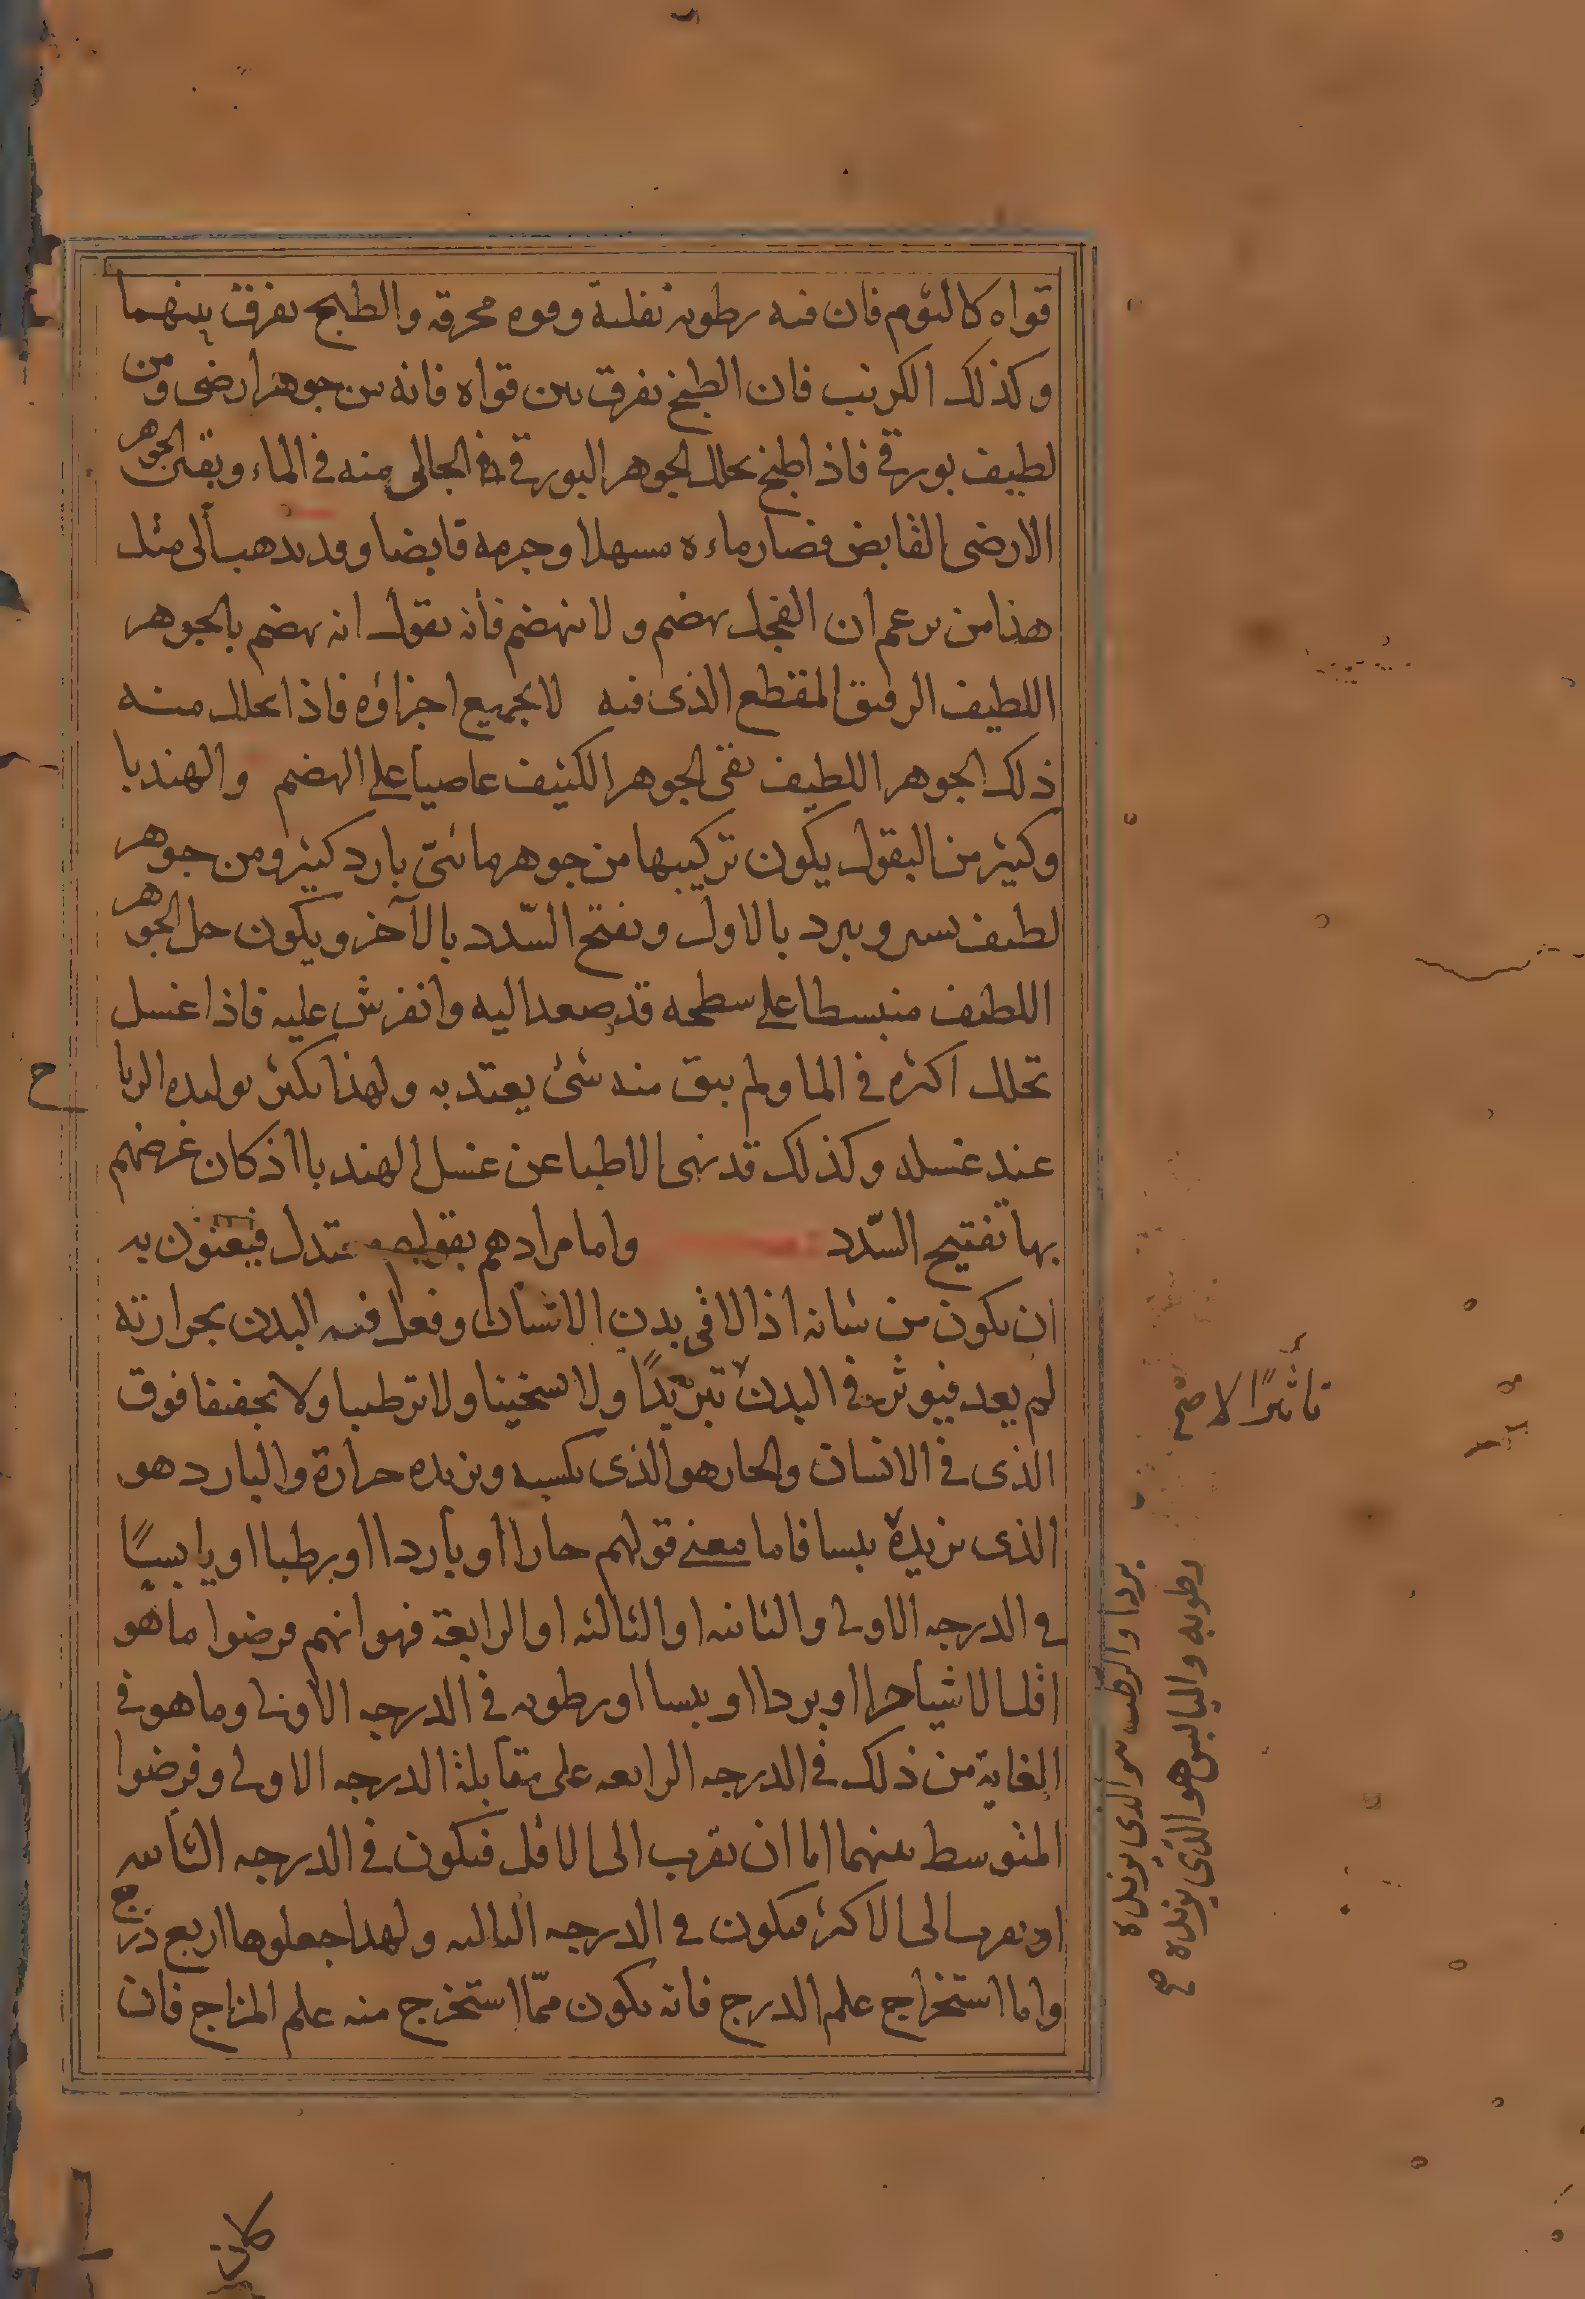 قواه كالثوم فان فيه رطوبة ثفلية وقوه محرقه والطبخ يفرق بينهما
وكذلك الكرنب فان الطبخ يفرق بين قواه فانه من جوهر ارضى ومن
لطيف بورقي فاذا طبخ تحلل الجوهر البورقي الجالى منه في الماء وبقى الجوهر
الارضى القابض فصار ماءه مسهلا وجرمه قابضا وقد يذهب الى مثل
هذا من يزعم ان الفجل يهضم ولا ينهضم فانه يقول انه يهضم بالجوهر
اللطيف الرقيق المقطع الذى فيه لا بجميع اجزاؤه فاذا تحلل منه
ذلك الجوهر اللطيف بقى الجوهر الكثيف عاصيا على الهضم والهندبا
وكثير من البقول يكون تركيبها من جوهر مائى بارد كثير ومن جوهر
لطيف يسير ويبرد بالاول ويفتح السّدد بالآخر ويكون جل الجوهر
اللطيف منبسطا على سطحه قد صعد اليه وانفرش عليه فاذا غسل
تحلل اكثره في الما ولم يبق منه شئ يعتد به ولهذا يكثر توليده الريا
ح
عند غسله وكذلك قد نهى الاطبا عن غسل الهندبا اذ كان غرضهم
بها تفتيح السّدد واما مرادهم بقولهم معتدل فيعنون به
ان يكون من شانه اذا لاقى بدن الانسان وفعل فيه البدن بحرارته
لم يعد فيوثر في البدن تبريدًا ولا تسخينا ولا ترطيبا ولا تجفيفا فوق
تاثيرًا لا صح
الذى في الانسان والحار هو الذى يكسبه ويزيده حرارة والبارد هو
الذى يزيده يبسا فاما معنى قولهم حارا او باردا او رطبا او يابسًا
بردا والرطب هو الذى يزيده
رطوبه واليابس هو الذي يزيده صح
في الدرجه الاولى والثانيه او الثالثه او الرابعة فهو انهم فرضوا ما هو
اقل الاشيا حرا او بردا او يبسا او رطوبه في الدرجه الاولى وما هو في
الغاية من ذلك في الدرجه الرابعه على مقابلة الدرجه الاولى وفرضوا
المتوسط بينهما اما ان يقرب الى الاقل فيكون في الدرجه الثانيه
او يقرب الى الاكثر فيكون في الدرجه الثالثه ولهذا جعلوها اربع درج
واما استخراج علم الدرج فانه يكون ممّا استخرج منه علم المزاج فان
كان